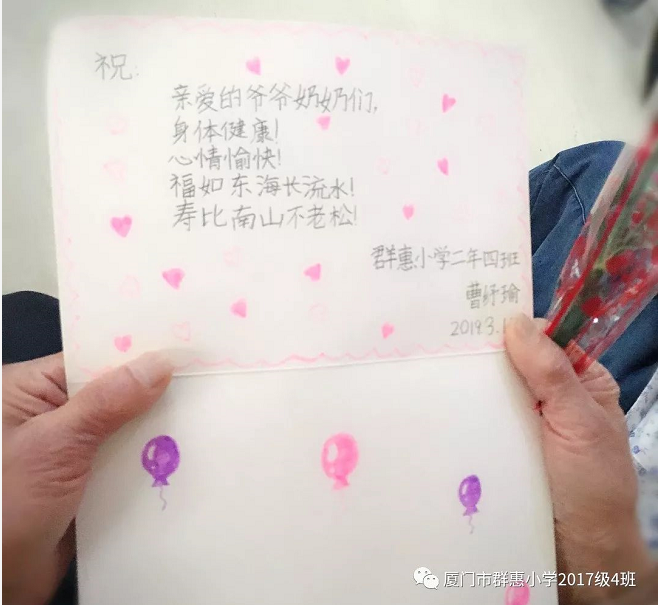 祝:
亲爱的爷爷奶奶们,
身体健康!
心情愉快!
福如东海长流水!
寿比南山不老松!
群惠小学二年四班
曹纾瑜
2019.3.1
厦门市群惠小学2017级4班